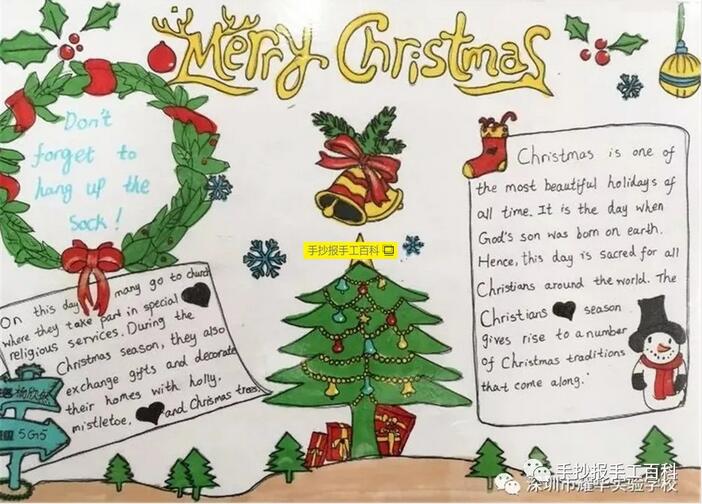 Merry Christmas
Don't
forget to
hang up the
Sock!
手抄报手工百科
Christmas is one of
the most beautiful holidays of
all time. It is the day when
God's son was born on earth.
Hence, this day is sacred for all
Christians around the world. The
Christians season
gives rise to a number
of Christmas traditions
that come along.
On this day many go to church
where they take part in special
religious services. During the
Christmas season, they also
exchange gifts and decorate
their homes with holly,
mistletoe, and Chrismas trees.
杨欣
5G5
手抄报手工百科
深圳市耀华实验学校